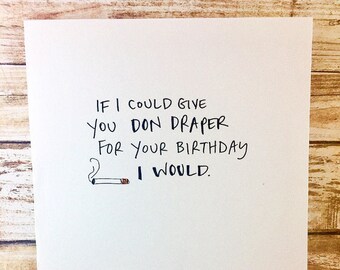 IF I COULD GIVE
YOU DON DRAPER
FOR YOUR BIRTHDAY
I WOULD.